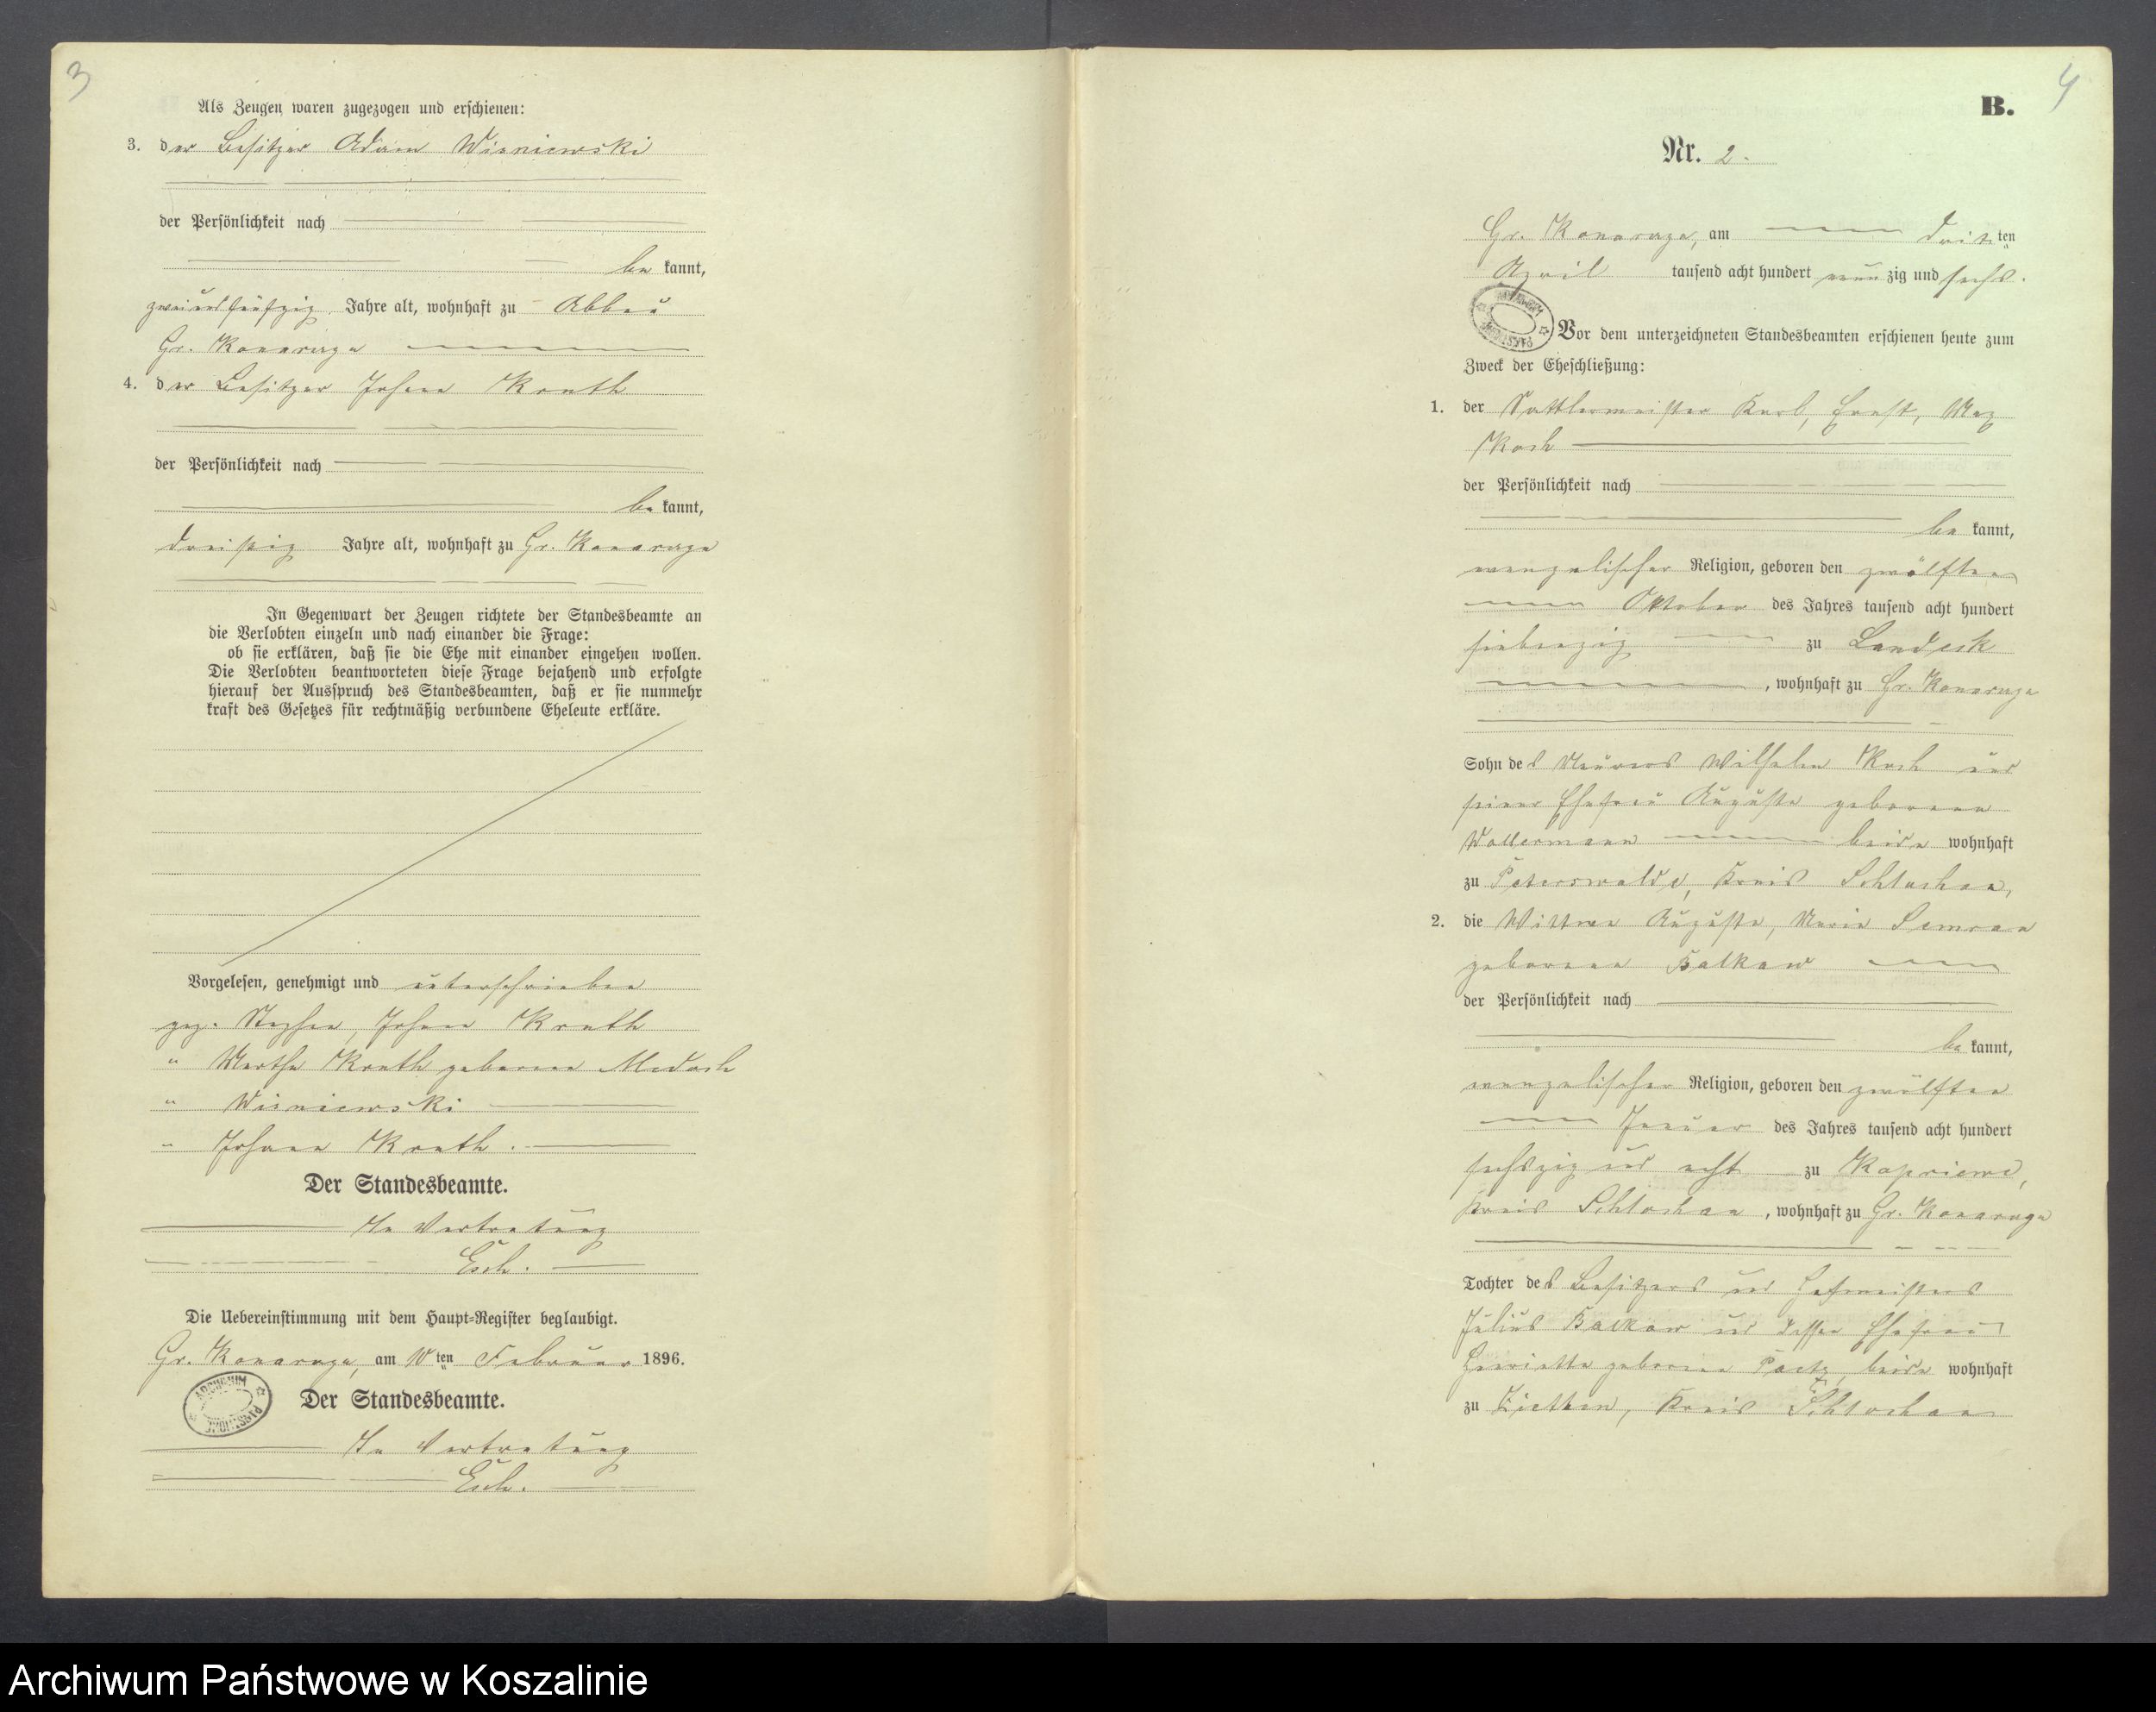 3
Als Zeugen waren zugezogen und erschienen:
3. der Besitzer Adam Wisniewski
der Persönlichkeit nach
be kannt,
zweiundfünfzig Jahre alt, wohnhaft zu Abbau
Gr. Konarczyn
4. der Besitzer Johann Knuth
der Persönlichkeit nach
be kannt,
dreißig Jahre alt, wohnhaft zu Gr. Konarczyn
In Gegenwart der Zeugen richtete der Standesbeamte an
die Verlobten einzeln und nach einander die Frage:
ob sie erklären, daß sie die Ehe mit einander eingehen wollen.
Die Verlobten beantworteten diese Frage bejahend und erfolgte
hierauf der Ausspruch des Standesbeamten, daß er sie nunmehr
kraft des Gesetzes für rechtmäßig verbundene Eheleute erkläre.
Vorgelesen, genehmigt und unterschrieben
gez. Stephan, Johann
" Martha geborene
" Wisniewski
" Johann
Der Standesbeamte.
In Vertretung
Esch.
Die Uebereinstimmung mit dem Haupt-Register beglaubigt.
am 10 ten Februar 1896.
Der Standesbeamte.
In Vertretung
Esch.
4
B.
Nr. 2.
am dritten
April tausend acht hundert neun zig und sechs.
Vor dem unterzeichneten Standesbeamten erschienen heute zum
Zweck der Eheschließung:
1. der Sattlermeister Karl, Ernst, Max
Koch
der Persönlichkeit nach
be kannt,
evangelischer Religion, geboren den zwölften
Oktober des Jahres tausend acht hundert
siebenzig zu Landeck
, wohnhaft zu
Sohn des Maurers Wilhelm Koch und
seiner Ehefrau Auguste geborene
Wollermann beide wohnhaft
zu Peterswalde, Kreis Schlochau,
2. die Wittwe Auguste, Marie Semrau
geborene Balkow
der Persönlichkeit nach
be kannt,
evangelischer Religion, geboren den zwölften
Januar des Jahres tausend acht hundert
sechszig und acht zu Kapriewe,
Kreis Schlochau, wohnhaft zu
Tochter des Besitzers und Hofmeisters
Julius Balkow und dessen Ehefrau
Henriette geborene Paetz, beide wohnhaft
zu Ziethen, Kreis Schlochau
Archiwum Państwowe w Koszalinie